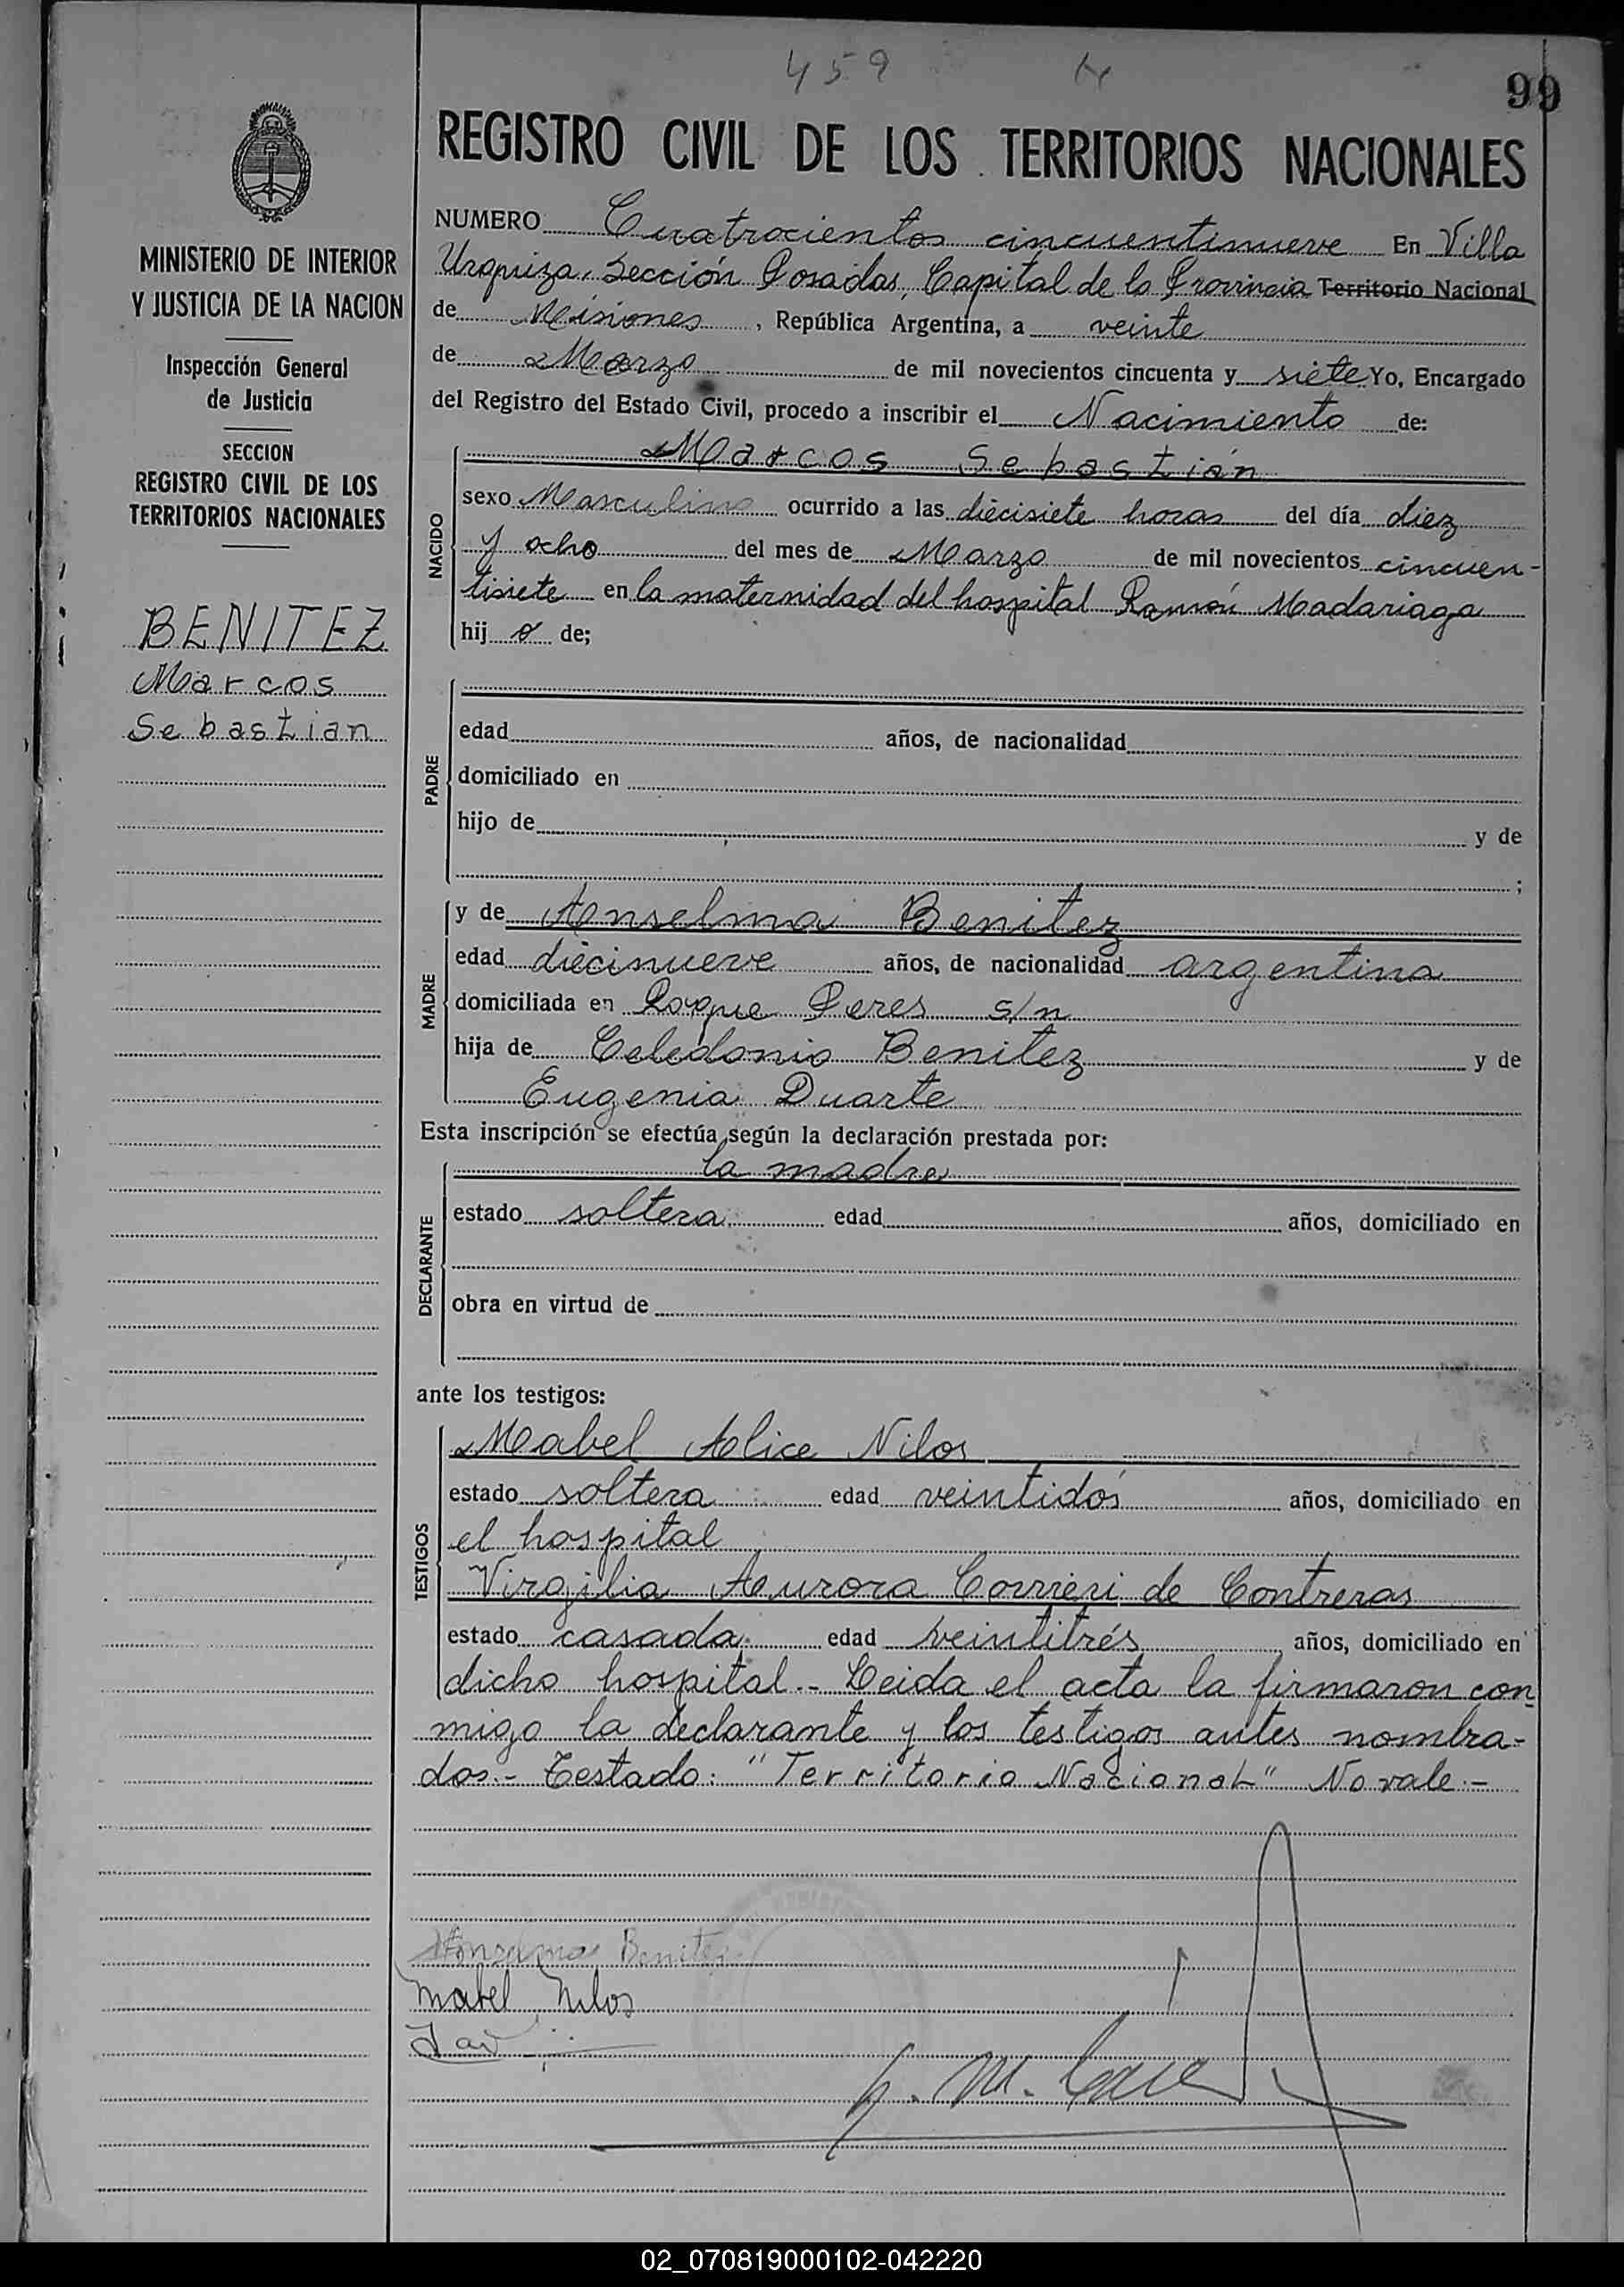 459
99
REGISTRO CIVIL DE LOS TERRITORIOS NACIONALES
MINISTERIO DE INTERIOR
Y JUSTICIA DE LA NACION
Inspección General
de Justicia
SECCION
REGISTRO CIVIL DE LOS
TERRITORIOS NACIONALES
BENITEZ
Marcos
Sebastian
NUMERO Cuatrocientos cincuentinueve En Villa
Urquiza, Sección Posadas, Capital de la Provincia Territorio Nacional
de Misiones, República Argentina, a veinte
de Marzo de mil novecientos cincuenta y siete Yo, Encargado
del Registro del Estado Civil, procedo a inscribir el Nacimiento de:
NACIDO
Marcos Sebastián
sexo Masculino ocurrido a las diecisiete horas del día diez
y ocho del mes de Marzo de mil novecientos cincuen-
tisiete en la maternidad del hospital Ramón Madariaga
hijo de;
PADRE
edad años, de nacionalidad
domiciliado en
hijo de y de
;
MADRE
y de Anselma Benitez
edad diecinueve años, de nacionalidad argentina
domiciliada en Roque Peres s/n
hija de Celedonio Benitez y de
Eugenia Duarte
Esta inscripción se efectúa según la declaración prestada por:
DECLARANTE
la madre
estado soltera edad años, domiciliado en
obra en virtud de
ante los testigos:
TESTIGOS
Mabel Alice Nilos
estado soltera edad veintidós años, domiciliado en
el hospital
Virgilia Aurora Corrieri de Contreras
estado casada edad veintitrés, años, domiciliado en
dicho hospital.- Leida el acta la firmaron con-
migo la declarante y los testigos antes nombra-
dos.- Testado: "Territorio Nacional" No vale.-
Anselma Benitez
Mabel Nilos
02_070819000102-042220